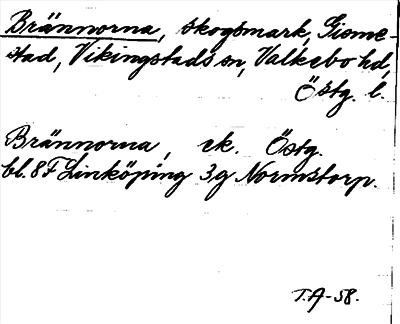 Brännorna, skogsmark, Gisme-
stad, Vikingstads sn, Valkebo hd,
Östg. l.
Brännorna, ek. Östg.
bl. 8F Linköping 3g Normstorp.
T.A-58.